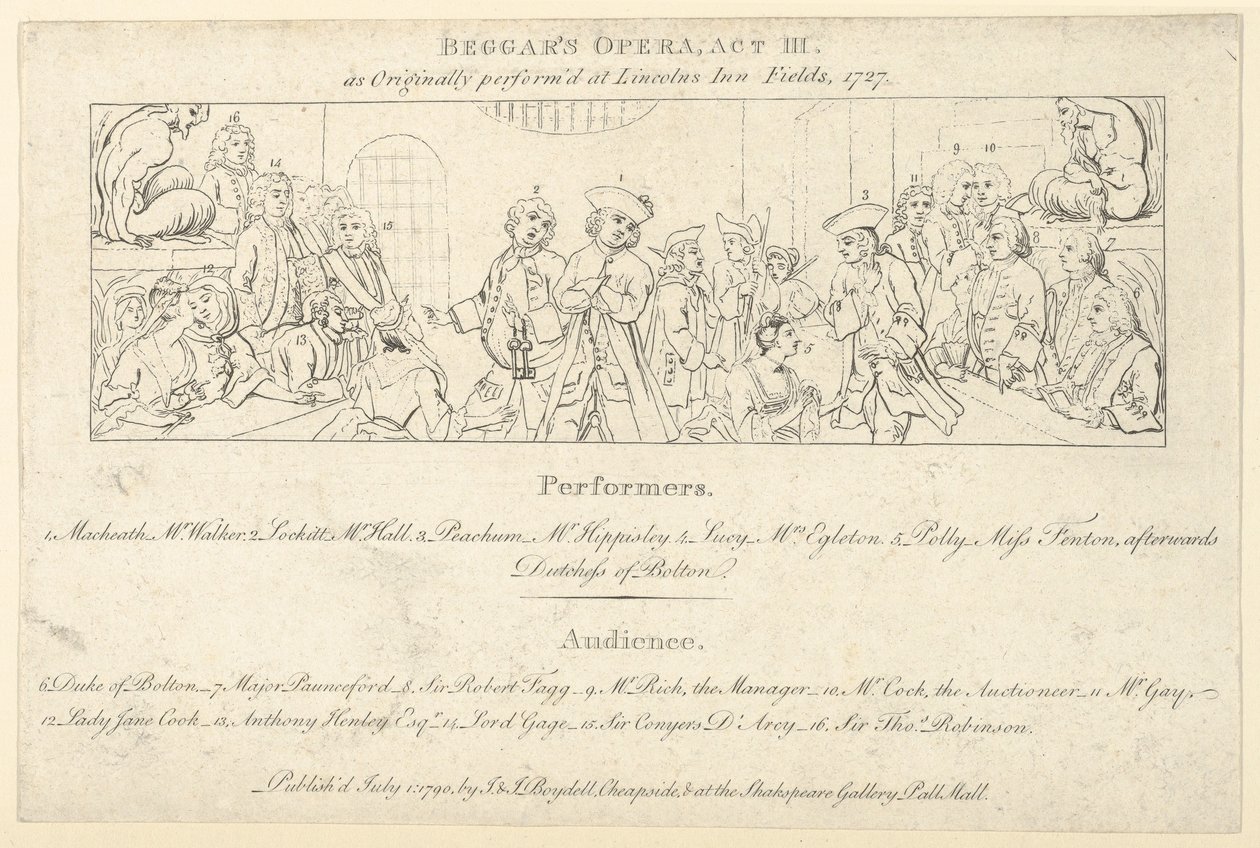 BEGGAR'S OPERA, ACT III.
as Originally perform'd at Lincolns Inn Fields, 1727.
16
14
15
12
13
2
1
3
5
11
9
10
8
7
6
Performers.
1, Macheath_Mr. Walker. 2_Lockitt_Mr. Hall. 3_Peachum_Mr. Hippisley. 4_Lucy_Mrs. Egleton. 5_Polly_Miſs Fenton, afterwards
Dutcheſs of Bolton.
Audience.
6_Duke of Bolton,_7_Major Paunceford_8. Sir Robert Fagg_9, Mr. Rich, the Manager_10, Mr. Cock, the Auctioneer_11 Mr. Gay,
12_Lady Jane Cook_13, Anthony Henley Esqr. 14_Lord Gage_15_Sir Conyers D'Arcy_16, Sir Thos. Robinson.
Publish'd July 1:1790, by J. & J. Boydell, Cheapside, & at the Shakspeare Gallery Pall Mall.